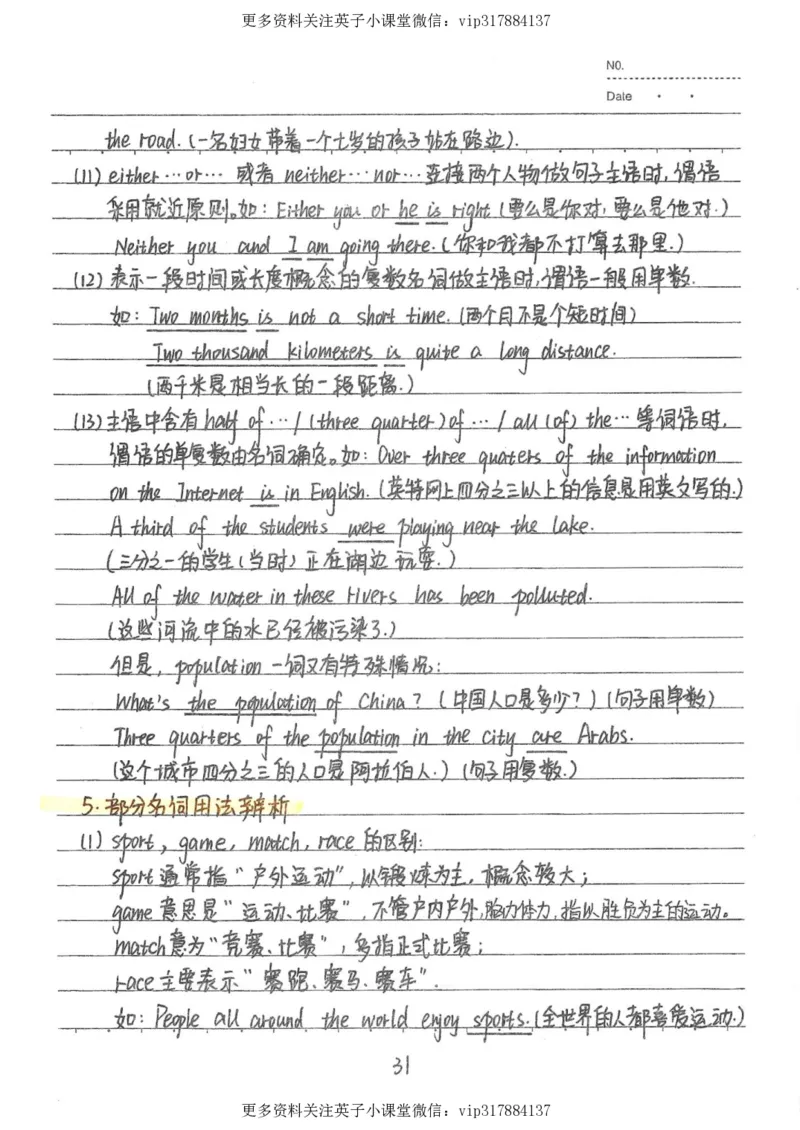 更多资料关注英子小课堂微信：vip317884137
NO.
Date
the road.（一名妇女带着一个七岁的孩子站在路边）.
(11) either…or… 或者 neither…nor…连接两个人物做句子主语时，谓语
采用就近原则。如：Either you or he is right.（要么是你对，要么是他对.）
Neither you and I am going there.（你和我都不打算去那里.）
(12) 表示一段时间或长度概念的复数名词做主语时，谓语一般用单数.
如：Two months is not a short time.（两个月不是个短时间）
Two thousand kilometers is quite a long distance.
（两千米是相当长的一段距离.）
(13) 主语中含有half of…/(three quarter)of…/all (of) the…等词语时，
谓语的单复数由名词确定。如：Over three quaters of the information
on the Internet is in English.（英特网上四分之三以上的信息是用英文写的.）
A third of the students were playing near the lake.
（三分之一的学生（当时）正在湖边玩耍.）
All of the water in these rivers has been polluted.
（这些河流中的水已经被污染了.）
但是，population一词又有特殊情况：
What's the population of China？（中国人口是多少？）（句子用单数）
Three quarters of the population in the city are Arabs.
（这个城市四分之三的人口是阿拉伯人.）（句子用复数.）
5.部分名词用法辨析
(1) sport，game，match，race的区别：
sport通常指“户外运动”，以锻炼为主，概念较大；
game意思是“运动、比赛”，不管户内户外，脑力体力，指以胜负为主的运动。
match意为“竞赛、比赛”，多指正式比赛；
race主要表示“赛跑、赛马、赛车”.
如：People all around the world enjoy sports.（全世界的人都喜爱运动.）
31
更多资料关注英子小课堂微信：vip317884137